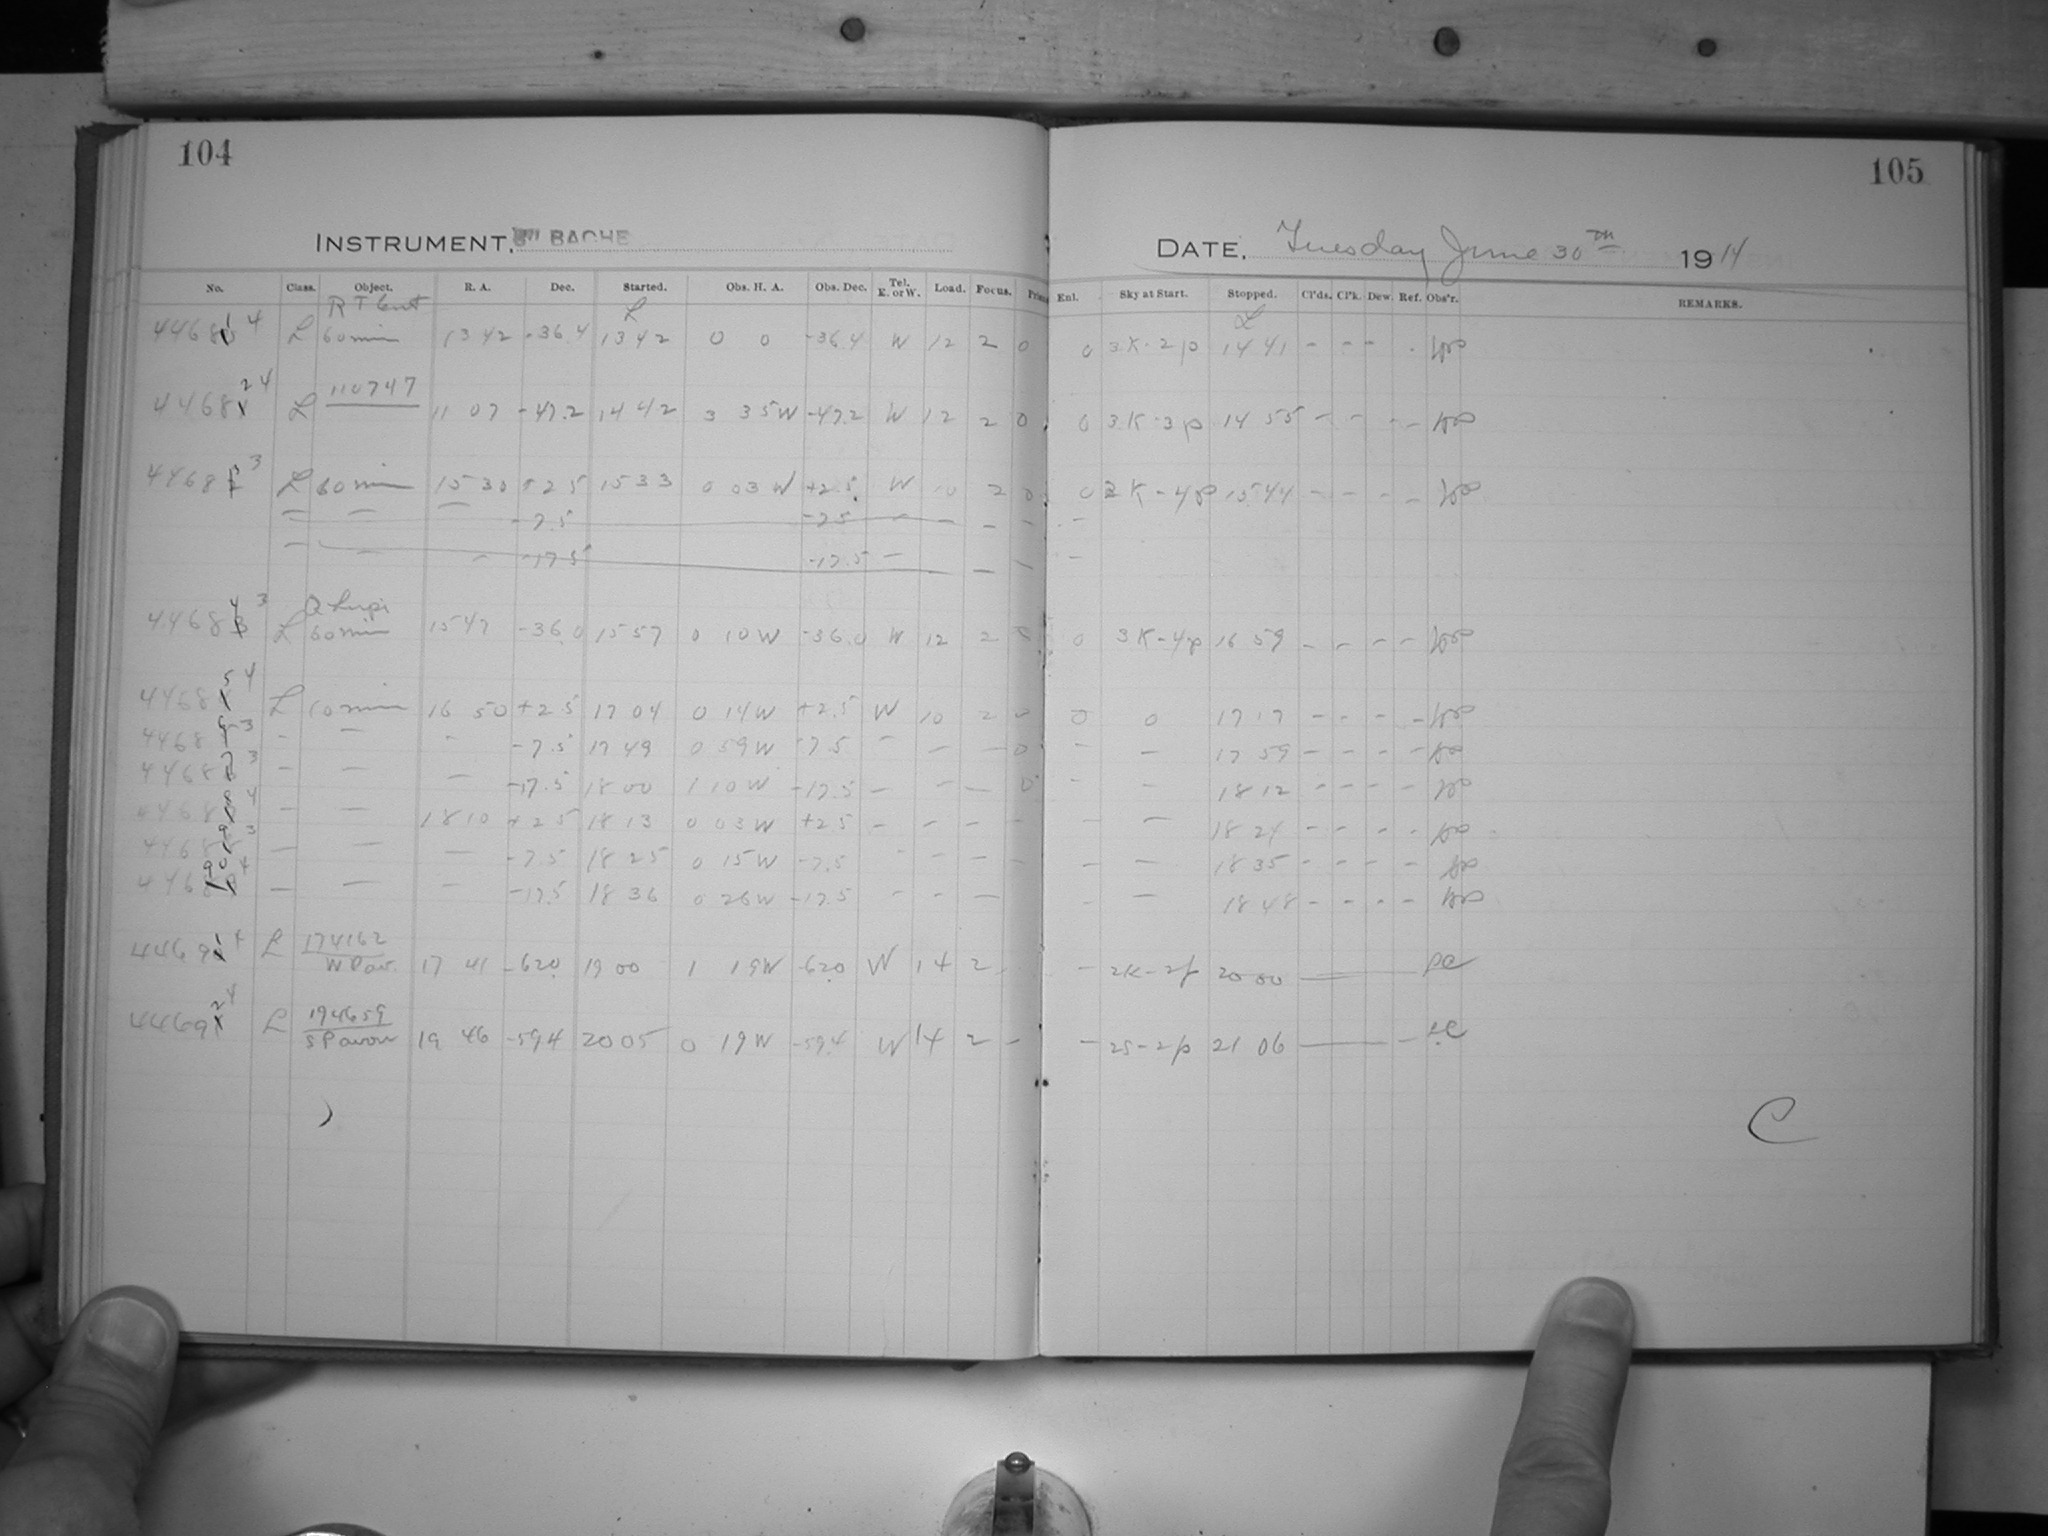 104
105
INSTRUMENT. 8" BACHE
DATE. Tuesday June 30TH 1914
No. Class. Object. R. A. Dec. Started. Obs. H. A. Obs. Dec. Tel. E. or W. Load. Focus. Enl. Sky at Start. Stopped. Cl'ds. Cl'k. Dew. Ref. Obs'r. REMARKS.
R T Cent L L
44681 4 L 60 min 13 42 -36.4 13 42 0 0 -36.4 W 12 2 0 0 3K-2p 14 41 - - - -
44682 4 L 110747 11 07 -47.2 14 42 3 35W -47.2 W 12 2 0 0 3K-3p 14 55 - - - -
44683 3 L 60 min 15 30 +2.5 15 33 0 03W +2.5 W 10 2 0 0 3K-4p 15 44 - - - -
- - - -7.5 -7.5 - - - - -
- - - -17.5 -17.5 - - - -
Q Lupi
44684 3 L 60 min 15 47 -36.0 15 57 0 10W -36.0 W 12 2 0 3K-4p 16 59 - - - -
44685 4 L 10 min 16 50 +2.5 17 04 0 14W +2.5 W 10 2 0 0 0 17 17 - - - -
44686 3 - - - -7.5 17 49 0 59W -7.5 - - - 0 - - 17 59 - - - -
44687 3 - - - -17.5 18 00 1 10W -17.5 - - - 0 - - 18 12 - - - -
44688 4 - - 18 10 +2.5 18 13 0 03W +2.5 - - - - - 18 24 - - - -
44689 3 - - - -7.5 18 25 0 15W -7.5 - - - - - - 18 35 - - - -
44690 4 - - - -17.5 18 36 0 26W -17.5 - - - - - 18 48 - - - -
44691 4 L 174162
W Pav. 17 41 -62.0 19 00 1 19W -62.0 W 14 2 - - 2K-2p 20 00
44692 4 L 194659
S Pavon 19 46 -59.4 20 05 0 19W -59.4 W 14 2 - - 2S-2p 21 06
C